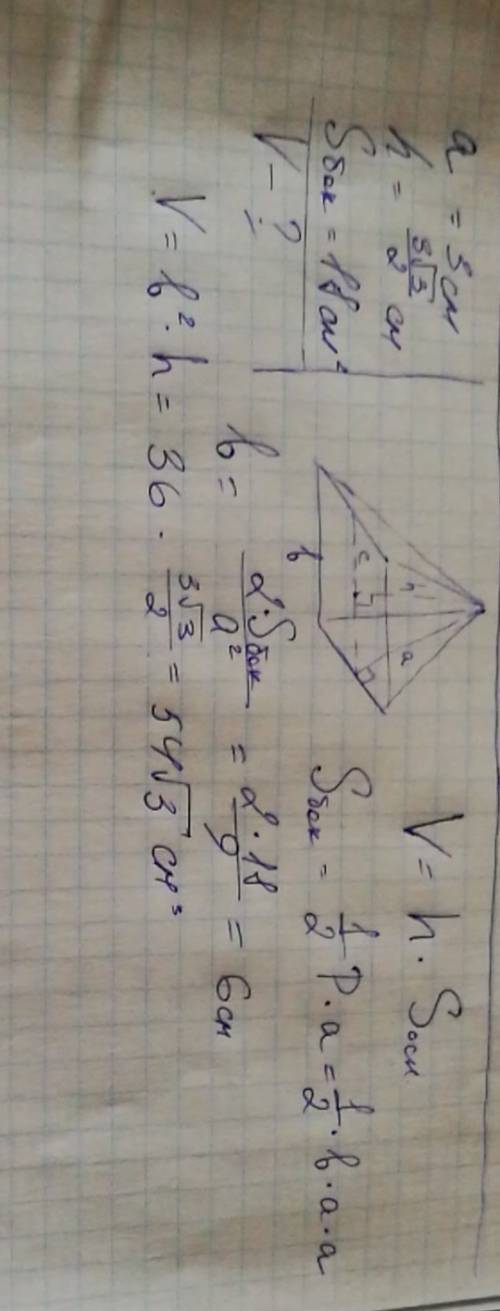 a = 3 см
h = 3√3/2 см
Sбок = 18 см²
V - ?
h
a
c
b
V = h · Sосн
Sбок = 1/2 P · a = 1/2 · b · a · a
b = 2·Sбок/a² = 2·18/9 = 6 см
V = b² · h = 36 · 3√3/2 = 54√3 см³